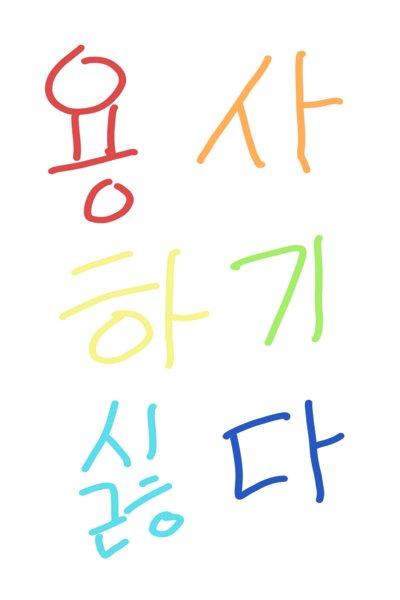 용사
하기
싫다